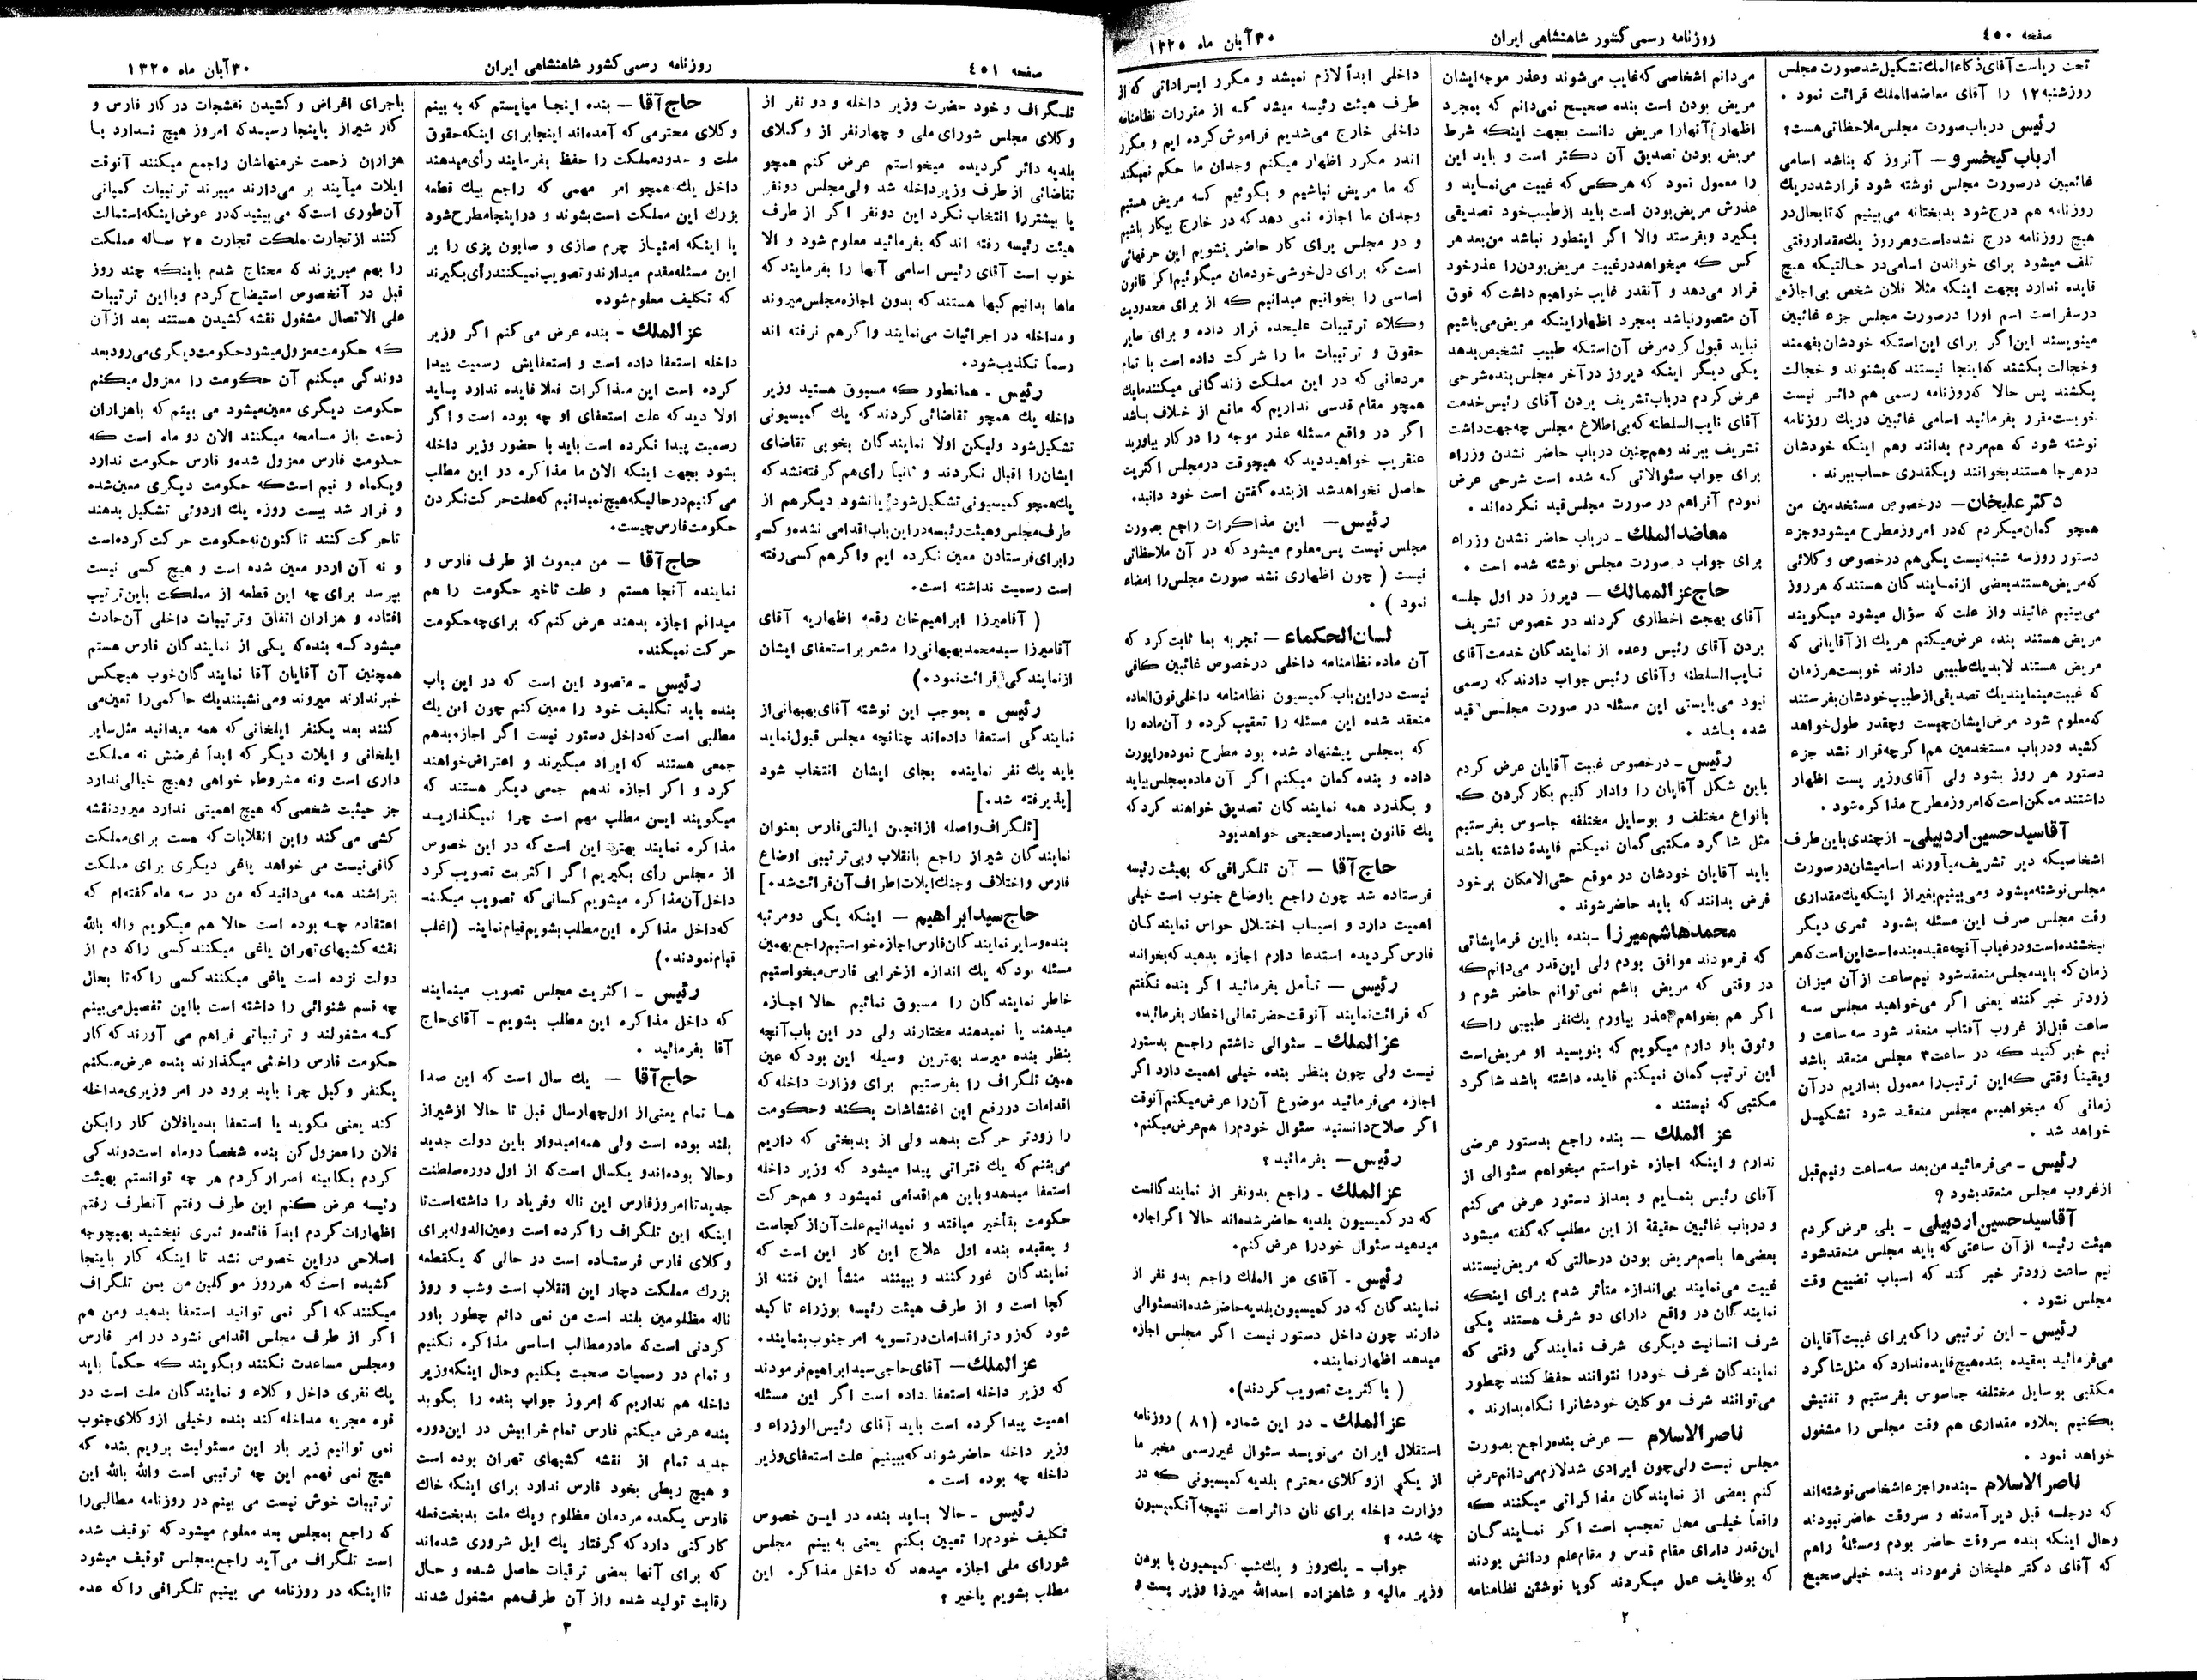 صفحه ٤٥٠
روزنامه رسمی کشور شاهنشاهی ایران
٣٠ آبان ماه ١٣٢٥
تحت ریاست آقای ذکاءالملك تشکیل شد صورت مجلس
روز شنبه ١٢ را آقای معاضدالملك قرائت نمود .
رئیس در باب صورت مجلس ملاحظاتی هست؟
ارباب کیخسرو — آنروز که بناشد اسامی
غائبین در صورت مجلس نوشته شود قرار شد در یك
روزنامه هم درج شود بدبختانه می بینیم که تا بحال در
هیچ روزنامه درج نشده است و هر روز یك مقدار وقتی
تلف میشود برای خواندن اسامی در حالتیکه هیچ
فایده ندارد بجهت اینکه مثلا فلان شخص بی اجازه
در سفر است اسم او را در صورت مجلس جزء غائبین
مینویسند این اگر برای این است که خودشان بفهمند
و خجالت بکشند که اینجا نیستند که بشنوند و خجالت
بکشند پس حالا که روزنامه رسمی هم دائر نیست
خوبست مقرر بفرمائید اسامی غائبین در یك روزنامه
نوشته شود که هم مردم بدانند وهم اینکه خودشان
در هرجا هستند بخوانند و یکقدری حساب ببرند .
دکتر علیخان — در خصوص مستخدمین من
همچو گمان میکردم که در امروز مطرح میشود و جزء
دستور روز سه شنبه نیست یکی هم در خصوص وکلائی
که مریض هستند بعضی از نمایندگان هستند که هر روز
می بینیم غائبند و از علت که سؤال میشود میگویند
مریض هستند بنده عرض میکنم هر یك از آقایانی که
مریض هستند لابد یك طبیبی دارند خوبست هر زمان
که غیبت مینمایند یك تصدیقی از طبیب خودشان بفرستند
که معلوم شود مرض ایشان چیست و چقدر طول خواهد
کشید و در باب مستخدمین هم اگر چه قرار نشد جزء
دستور هر روز بشود ولی آقای وزیر پست اظهار
داشتند ممکن است که امروز مطرح مذاکره شود .
آقا سید حسین اردبیلی - از چندی باین طرف
اشخاصیکه دیر تشریف میآورند اسامیشان در صورت
مجلس نوشته میشود و می بینیم بغیر از اینکه یك مقداری
وقت مجلس صرف این مسئله بشود ثمری دیگر
نبخشنده است و در غیاب آنچه عقیده بنده است این است که هر
زمان که باید مجلس منعقد شود نیم ساعت از آن میزان
زودتر خبر کنند یعنی اگر می خواهید مجلس سه
ساعت قبل از غروب آفتاب منعقد شود سه ساعت و
نیم خبر کنید که در ساعت ٣ مجلس منعقد باشد
و یقیناً وقتی که این ترتیب را معمول بداریم در آن
زمانی که میخواهیم مجلس منعقد شود تشکیل
خواهد شد .
رئیس - می فرمائید من بعد سه ساعت و نیم قبل
از غروب مجلس منعقد بشود ؟
آقا سید حسین اردبیلی - بلی عرض کردم
هیئت رئیسه از آن ساعتی که باید مجلس منعقد شود
نیم ساعت زودتر خبر کند که اسباب تضییع وقت
مجلس نشود .
رئیس - این ترتیبی را که برای غیبت آقایان
می فرمائید بعقیده بنده هیچ فایده ندارد که مثل شاگرد
مکتبی بوسایل مختلفه جاسوس بفرستیم و تفتیش
بکنیم بعلاوه مقداری هم وقت مجلس را مشغول
خواهد نمود .
ناصر الاسلام - بنده را جزء اشخاصی نوشته اند
که در جلسه قبل دیر آمدند و سر وقت حاضر نبودند
وحال اینکه بنده سروقت حاضر بودم ومسئلهٔ راهم
که آقای دکتر علیخان فرمودند بنده خیلی صحیح
می دانم اشخاصی که غایب می شوند وعذر موجه ایشان
مریض بودن است بنده صحیح نمی دانم که بمجرد
اظهار آنها را مریض دانست بجهت اینکه شرط
مریض بودن تصدیق آن دکتر است و باید این
را معمول نمود که هر کس که غیبت می نماید و
عذرش مریض بودن است باید از طبیب خود تصدیقی
بگیرد و بفرستد والا اگر اینطور نباشد من بعد هر
کس که میخواهد در غیبت مریض بودن را عذر خود
قرار می دهد و آنقدر غایب خواهیم داشت که فوق
آن متصور نباشد بمجرد اظهار اینکه مریض می باشیم
نباید قبول کرد مرض آن است که طبیب تشخیص بدهد
یکی دیگر اینکه دیروز در آخر مجلس بنده شرحی
عرض کردم در باب تشریف بردن آقای رئیس خدمت
آقای نایب السلطنه که بی اطلاع مجلس چه جهت داشت
تشریف ببرند وهم چنین در باب حاضر نشدن وزراء
برای جواب سئوالاتی که شده است شرحی عرض
نمودم آنرا هم در صورت مجلس قید نکرده اند .
معاضد الملك - در باب حاضر نشدن وزراء
برای جواب در صورت مجلس نوشته شده است .
حاج عز الممالك — دیروز در اول جلسه
آقای بهجت اخطاری کردند در خصوص تشریف
بردن آقای رئیس وعده از نمایندگان خدمت آقای
نایب السلطنه و آقای رئیس جواب دادند که رسمی
نبود می بایستی این مسئله در صورت مجلس قید
شده باشد .
رئیس - در خصوص غیبت آقایان عرض کردم
باین شکل آقایان را وادار کنیم بکار کردن که
بانواع مختلف و بوسایل مختلفه جاسوس بفرستیم
مثل شاگرد مکتبی گمان نمیکنم فایدهٔ داشته باشد
باید آقایان خودشان در موقع حتی الامکان بر خود
فرض بدانند که باید حاضر شوند .
محمد هاشم میرزا - بنده با این فرمایشاتی
که فرمودند موافق بودم ولی این قدر می دانم که
در وقتی که مریض باشم نمی توانم حاضر شوم و
اگر هم بخواهم عذر بیاورم یك نفر طبیبی را که
وثوق باو دارم میگویم که بنویسید او مریض است
این ترتیب گمان نمیکنم فایده داشته باشد شاگرد
مکتبی که نیستند .
عز الملك — بنده راجع بدستور عرضی
ندارم و اینکه اجازه خواستم میخواهم سئوالی از
آقای رئیس بنمایم و بعد از دستور عرض می کنم
و در باب غائبین حقیقة از این مطلب که گفته میشود
بعضی ها باسم مریض بودن در حالتی که مریض نیستند
غیبت می نمایند بی اندازه متأثر شدم برای اینکه
نمایندگان در واقع دارای دو شرف هستند یکی
شرف انسانیت دیگری شرف نمایندگی وقتی که
نمایندگان شرف خود را نتوانند حفظ کنند چطور
می توانند شرف موکلین خودشان را نگاه بدارند .
ناصر الاسلام — عرض بنده راجع بصورت
مجلس نیست ولی چون ایرادی شد لازم می دانم عرض
کنم بعضی از نمایندگان مذاکراتی میکنند که
واقعاً خیلی محل تعجب است اگر نمایندگان
این قدر دارای مقام قدس و مقام علم ودانش بودند
که بوظایف عمل میکردند گویا نوشتن نظامنامه
داخلی ابداً لازم نمیشد و مکرر ایراداتی که از
طرف هیئت رئیسه میشد که از مقررات نظامنامه
داخلی خارج می شدیم فراموش کرده ایم و مکرر
اندر مکرر اظهار میکنم وجدان ما حکم نمیکند
که ما مریض نباشیم و بگوئیم که مریض هستیم
وجدان ما اجازه نمی دهد که در خارج بیکار باشیم
و در مجلس برای کار حاضر نشویم این حرفهائی
است که برای دل خوشی خودمان میگوئیم اگر قانون
اساسی را بخوانیم میدانیم که از برای محدودیت
وکلاء ترتیبات علیحده قرار داده و برای سایر
حقوق و ترتیبات ما را شرکت داده است با تمام
مردمانی که در این مملکت زندگانی میکنند ما یك
همچو مقام قدسی نداریم که مانع از خلاف باشد
اگر در واقع مسئله عذر موجه را در کار بیاورید
عنقریب خواهید دید که هیچوقت در مجلس اکثریت
حاصل نخواهد شد از بنده گفتن است خود دانید.
رئیس — این مذاکرات راجع بصورت
مجلس نیست پس معلوم میشود که در آن ملاحظاتی
نیست ( چون اظهاری نشد صورت مجلس را امضاء
نمود ) .
لسان الحکماء — تجربه بما ثابت کرد که
آن ماده نظامنامه داخلی در خصوص غائبین کافی
نیست در این باب کمیسیون نظامنامه داخلی فوق العاده
منعقد شده این مسئله را تعقیب کرده و آن ماده را
که بمجلس پیشنهاد شده بود مطرح نموده راپورت
داده و بنده گمان میکنم اگر آن ماده بمجلس بیاید
و بگذرد همه نمایندگان تصدیق خواهند کرد که
یك قانون بسیار صحیحی خواهد بود
حاج آقا — آن تلگرافی که بهیئت رئیسه
فرستاده شد چون راجع باوضاع جنوب است خیلی
اهمیت دارد و اسباب اختلال حواس نمایندگان
فارس گردیده استدعا دارم اجازه بدهید که بخوانند
رئیس — تأمل بفرمائید اگر بنده نگفتم
که قرائت نمایند آنوقت حضرتعالی اخطار بفرمائید.
عز الملك - سئوالی داشتم راجع بدستور
نیست ولی چون بنظر بنده خیلی اهمیت دارد اگر
اجازه می فرمائید موضوع آن را عرض میکنم آنوقت
اگر صلاح دانستید سئوال خودم را هم عرض میکنم.
رئیس — بفرمائید ؟
عز الملك - راجع بدو نفر از نمایندگانست
که در کمیسیون بلدیه حاضر شده اند حالا اگر اجازه
میدهید سئوال خود را عرض کنم.
رئیس - آقای عز الملك راجع بدو نفر از
نمایندگان که در کمیسیون بلدیه حاضر شده اند سئوالی
دارند چون داخل دستور نیست اگر مجلس اجازه
میدهد اظهار نمایند.
( با کثریت تصویب کردند).
عز الملك - در این شماره (٨١) روزنامه
استقلال ایران می نویسد سئوال غیر رسمی مخبر ما
از یکی از وکلای محترم بلدیه کمیسیونی که در
وزارت داخله برای نان دائر است نتیجه آنکمیسیون
چه شده ؟
جواب - یك روز و یك شب کمیسیون با بودن
وزیر مالیه و شاهزاده اسدالله میرزا وزیر پست و
٢
صفحه ٤٥١
روزنامه رسمی کشور شاهنشاهی ایران
٣٠ آبان ماه ١٣٢٥
تلگراف و خود حضرت وزیر داخله و دو نفر از
وکلای مجلس شورای ملی و چهار نفر از وکلای
بلدیه دائر گردیده میخواستم عرض کنم همچو
تقاضائی از طرف وزیر داخله شد ولی مجلس دونفر
یا بیشتر را انتخاب نکرد این دونفر اگر از طرف
هیئت رئیسه رفته اند که بفرمائید معلوم شود و الا
خوب است آقای رئیس اسامی آنها را بفرمایند که
ماها بدانیم کیها هستند که بدون اجازه مجلس میروند
و مداخله در اجرائیات می نمایند و اگر هم نرفته اند
رسماً تکذیب شود.
رئیس - همانطور که مسبوق هستید وزیر
داخله یك همچو تقاضائی کردند که یك کمیسیونی
تشکیل شود ولیکن اولا نمایندگان بخوبی تقاضای
ایشان را اقبال نکردند و ثانیاً رأی هم گرفته نشد که
یك همچو کمیسیونی تشکیل شود یا نشود دیگر هم از
طرف مجلس و هیئت رئیسه در این باب اقدامی نشده و کسی
را برای فرستادن معین نکرده ایم و اگر هم کسی رفته
است رسمیت نداشته است.
( آقا میرزا ابراهیم خان رقعه اظهاریه آقای
آقا میرزا سید محمد بهبهانی را مشعر بر استعفای ایشان
از نمایندگی قرائت نمود.)
رئیس - بموجب این نوشته آقای بهبهانی از
نمایندگی استعفا داده اند چنانچه مجلس قبول نماید
باید یك نفر نماینده بجای ایشان انتخاب شود
[پذیرفته شد.]
[تلگراف واصله از انجمن ایالتی فارس بعنوان
نمایندگان شیراز راجع بانقلاب و بی ترتیبی اوضاع
فارس و اختلاف و جنك ایلات اطراف آن قرائت شد.]
حاج سید ابراهیم — اینکه یکی دو مرتبه
بنده و سایر نمایندگان فارس اجازه خواستیم راجع بهمین
مسئله بود که یك اندازه از خرابی فارس میخواستیم
خاطر نمایندگان را مسبوق نمائیم حالا اجازه
میدهند یا نمیدهند مختارند ولی در این باب آنچه
بنظر بنده میرسد بهترین وسیله این بود که عین
همین تلگراف را بفرستیم برای وزارت داخله که
اقدامات در رفع این اغتشاشات بکند و حکومت
را زودتر حرکت بدهد ولی از بدبختی که داریم
می بینم که یك فتراتی پیدا میشود که وزیر داخله
استعفا میدهد و باین هم اقدامی نمیشود و هم حرکت
حکومت بتأخیر میافتد و نمیدانیم علت آن از کجاست
و بعقیده بنده اول علاج این کار این است که
نمایندگان غور کنند و ببینند منشأ این فتنه از
کجا است و از طرف هیئت رئیسه بوزراء تاکید
شود که زودتر اقدامات در تسویه امر جنوب بنمایند.
عز الملك — آقای حاجی سید ابراهیم فرمودند
که وزیر داخله استعفا داده است اگر این مسئله
اهمیت پیدا کرده است باید آقای رئیس الوزراء و
وزیر داخله حاضر شوند که ببینیم علت استعفای وزیر
داخله چه بوده است .
رئیس - حالا باید بنده در این خصوص
تکلیف خودم را تعیین بکنم یعنی به بینم مجلس
شورای ملی اجازه میدهد که داخل مذاکره این
مطلب بشویم یا خیر ؟
حاج آقا — بنده اینجا میبایستم که به بینم
وکلای محترمی که آمده اند اینجا برای اینکه حقوق
ملت و حدود مملکت را حفظ بفرمایند رأی میدهند
داخل یك همچو امر مهمی که راجع بیك قطعه
بزرك این مملکت است بشوند و در اینجا مطرح شود
یا اینکه امتیاز چرم سازی و صابون پزی را بر
این مسئله مقدم میدارند و تصویب نمیکنند رأی بگیرند
که تکلیف معلوم شود.
عز الملك - بنده عرض می کنم اگر وزیر
داخله استعفا داده است و استعفایش رسمیت پیدا
کرده است این مذاکرات فعلا فایده ندارد باید
اولا دید که علت استعفای او چه بوده است و اگر
رسمیت پیدا نکرده است باید با حضور وزیر داخله
بشود بجهت اینکه الان ما مذاکره در این مطلب
می کنیم در حالیکه هیچ نمیدانیم که علت حرکت نکردن
حکومت فارس چیست.
حاج آقا — من مبعوث از طرف فارس و
نماینده آنجا هستم و علت تاخیر حکومت را هم
میدانم اجازه بدهند عرض کنم که برای چه حکومت
حرکت نمیکند.
رئیس - مقصود این است که در این باب
بنده باید تکلیف خود را معین کنم چون این یك
مطلبی است که داخل دستور نیست اگر اجازه بدهم
جمعی هستند که ایراد میگیرند و اعتراض خواهند
کرد و اگر اجازه ندهم جمعی دیگر هستند که
میگویند ایسن مطلب مهم است چرا نمیگذارید
مذاکره نمایند بهتر این است که در این خصوص
از مجلس رأی بگیریم اگر اکثریت تصویب کرد
داخل آن مذاکره میشویم کسانی که تصویب میکنند
که داخل مذاکره این مطلب بشویم قیام نمایند (اغلب
قیام نمودند.)
رئیس - اکثریت مجلس تصویب مینمایند
که داخل مذاکره این مطلب بشویم - آقای حاج
آقا بفرمائید .
حاج آقا — یك سال است که این صدا
ها تمام یعنی از اول چهار سال قبل تا حالا از شیراز
بلند بوده است ولی همه امیدوار باین دولت جدید
وحالا بوده اند و یکسال است که از اول دوره سلطنت
جدید تا امروز فارس این ناله و فریاد را داشته است تا
اینکه این تلگراف را کرده است وعین الدوله برای
وکلای فارس فرستاده است در حالی که یکقطعه
بزرك مملکت دچار این انقلاب است وشب و روز
ناله مظلومین بلند است من نمی دانم چطور باور
کردنی است که ما در مطالب اساسی مذاکره نکنیم
و تمام در رسمیات صحبت بکنیم وحال اینکه وزیر
داخله هم نداریم که امروز جواب بنده را بگوید
بنده عرض میکنم فارس تمام خرابیش در این دوره
جدید تمام از نقشه کشیهای تهران بوده است
و هیچ ربطی بخود فارس ندارد برای اینکه خاك
فارس یکعده مردمان مظلوم ویك ملت بدبخت فعله
کارکنی دارد که گرفتار یك ایل شروری شده اند
که برای آنها بعضی ترقیات حاصل شده و حال
رقابت تولید شده واز آن طرف هم مشغول شدند
باجرای اغراض و کشیدن نقشجات در کار فارس و
کار شیراز باینجا رسید که امروز هیچ ندارد با
هزاران زحمت خرمنهاشان راجمع میکنند آنوقت
ایلات میآیند بر می دارند میبرند ترتیبات کمپانی
آن طوری است که می بینید که در عوض اینکه استمالت
کنند از تجارت مملکت تجارت ٢٥ ساله مملکت
را بهم میریزند که محتاج شدم باینکه چند روز
قبل در آنخصوص استیضاح کردم وبا این ترتیبات
علی الاتصال مشغول نقشه کشیدن هستند بعد از آن
که حکومت معزول میشود حکومت دیگری می رود بعد
دوندگی میکنم آن حکومت را معزول میکنم
حکومت دیگری معین میشود می بینم که باهزاران
زحمت باز مسامحه میکنند الان دو ماه است که
حکومت فارس معزول شده و فارس حکومت ندارد
ویکماه و نیم است که حکومت دیگری معین شده
و قرار شد بیست روزه یك اردوئی تشکیل بدهند
تا حرکت کنند تا کنون نه حکومت حرکت کرده است
و نه آن اردو معین شده است و هیچ کسی نیست
بپرسد برای چه این قطعه از مملکت باین ترتیب
افتاده و هزاران اتفاق وترتیبات داخلی آن حادث
میشود که بنده که یکی از نمایندگان فارس هستم
همچنین آن آقایان آقا نمایندگان خوب هیچکس
خبر ندارند میروند و می نشینند یك حاکمی را تعین می
کنند بعد یکنفر ایلخانی که همه میدانید مثل سایر
ایلخانی و ایلات دیگر که ابداً غرضش نه مملکت
داری است ونه مشروطه خواهی وهیچ خیالی ندارد
جز حیثیت شخصی که هیچ اهمیتی ندارد میرود نقشه
کشی می کند و این انقلابات که هست برای مملکت
کافی نیست می خواهد یاغی دیگری برای مملکت
بتراشند همه می دانید که من در سه ماه گفته ام که
اعتقادم چه بوده است حالا هم میگویم واله بالله
نقشه کشیهای تهران یاغی میکنند کسی را که دم از
دولت نزده است یاغی میکنند کسی را که تا بحال
چه قسم شنوائی را داشته است با این تفصیل می بینم
که مشغولند و ترتیباتی فراهم می آورند که کار
حکومت فارس راختی میگذارند بنده عرض میکنم
یکنفر وکیل چرا باید برود در امر وزیری مداخله
کند یعنی بگوید یا استعفا بده یا فلان کار را بکن
فلان را معزول کن بنده شخصاً دوماه است دوندگی
کردم بکابینه اصرار کردم هر چه توانستم بهیئت
رئیسه عرض کنم این طرف رفتم آنطرف رفتم
اظهارات کردم ابداً فائده و ثمری نبخشید بهیچوجه
اصلاحی در این خصوص نشد تا اینکه کار باینجا
کشیده است که هر روز موکلین من بمن تلگراف
میکنند که اگر نمی توانید استعفا بدهید ومن هم
اگر از طرف مجلس اقدامی نشود در امر فارس
ومجلس مساعدت نکنند وبگویند که حکماً باید
یك نفری داخل وکلاء و نمایندگان ملت است در
قوه مجریه مداخله کند بنده وخیلی از وکلای جنوب
نمی توانیم زیر بار این مسئولیت برویم بنده که
هیچ نمی فهمم این چه ترتیبی است والله بالله این
ترتیبات خوش نیست می بینم در روزنامه مطالبی را
که راجع بمجلس بعد معلوم میشود که توقیف شده
است تلگراف می آید راجع بمجلس توقیف میشود
تا اینکه در روزنامه می بینیم تلگرافی را که عده
٣